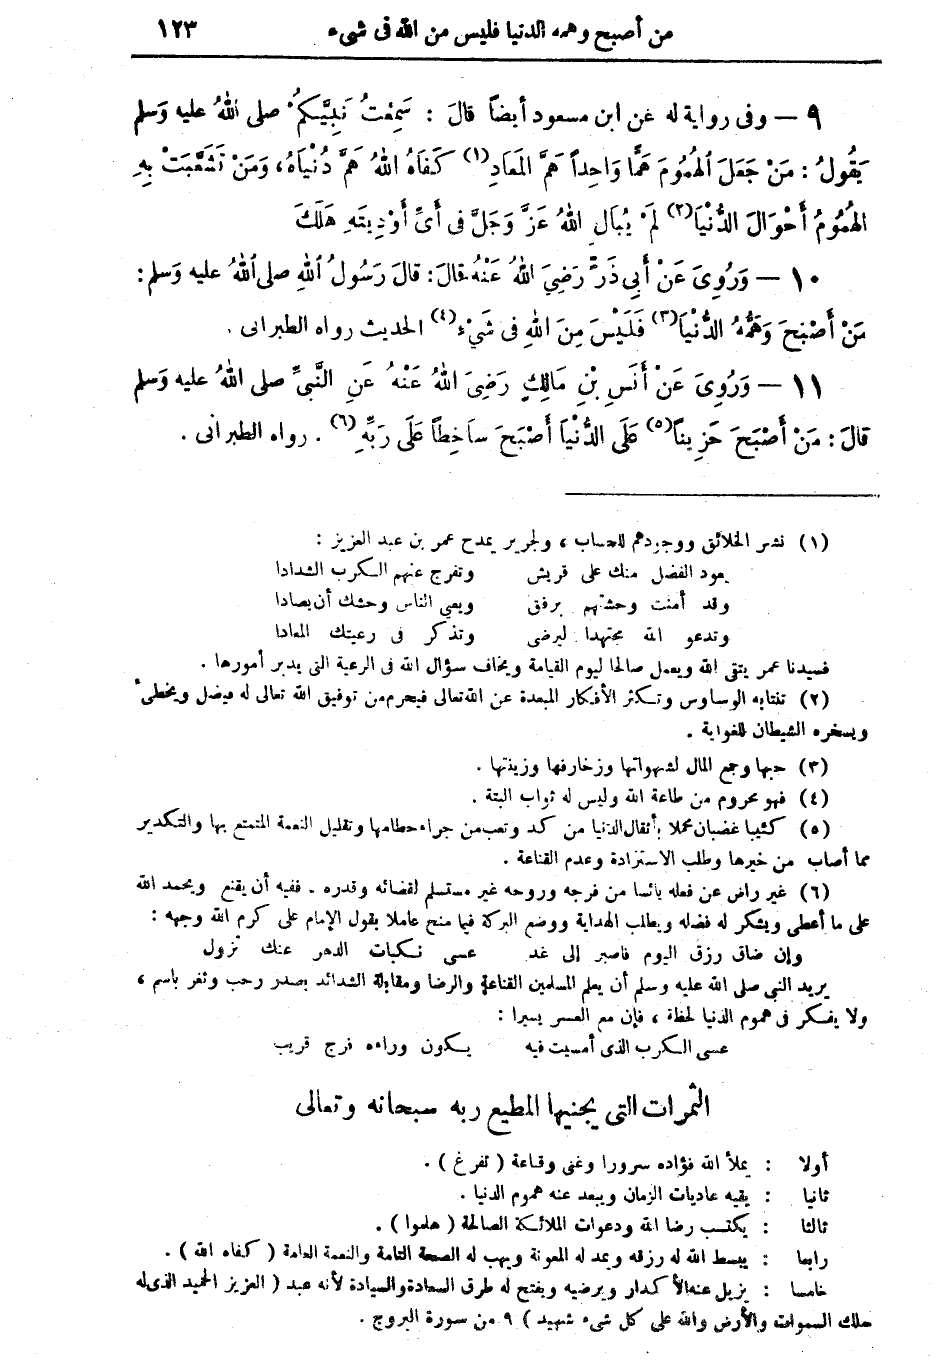 من أصبح وهمه الدنيا فليس من الله فى شىء ١٢٣
٩ — وفى رواية له عن ابن مسعود أيضاً قالَ : سَمِعْتُ نَبِيَّكُمْ صلى اللهُ عليه وَسلم
يَقُولُ : مَنْ جَعَلَ الْهُمُومَ هَمًّا وَاحِداً هَمَّ المَعَادِ (١) كَفَاهُ اللهُ هَمَّ دُنْيَاهُ ، وَمَنْ تَشَعَّبَتْ بِهِ
الهُمُومُ أَحْوَالَ الدُّنْيَا (٢) لَمْ يُبَالِ اللهُ عَزَّ وَجَلَّ فى أَىِّ أَوْدِيتِهِ هَلَكَ
١٠ — وَرُوِىَ عَنْ أَبِى ذَرٍّ رَضِىَ اللهُ عَنْهُ قالَ : قالَ رَسُولُ اللهِ صلى اللهُ عليه وَسلم :
مَنْ أَصْبَحَ وَهَمُّهُ الدُّنْيَا (٣) فَلَيْسَ مِنَ اللهِ فى شَىْءٍ (٤) الحديث رواه الطبرانى .
١١ — وَرُوِىَ عَنْ أَنَسِ بْنِ مَالِكٍ رَضِىَ اللهُ عَنْهُ عَنِ النَّبِىِّ صلى اللهُ عليه وَسلم
قالَ : مَنْ أَصْبَحَ حَزِيناً (٥) عَلَى الدُّنْيَا أَصْبَحَ سَاخِطاً عَلَى رَبِّهِ (٦) . رواه الطبرانى .
(١) نشر الخلائق ووجودهم للحساب ، ولجرير يمدح عمر بن عبد العزيز :
يعود الفضل منك على قريش وتفرج عنهم الكرب الشدادا
وقد أمنت وحشتهم برفق ويعي الناس وحشك أن يصادا
وتدعو الله مجتهدا ليرضى وتذكر فى رعيتك المعادا
فسيدنا عمر يتقى الله ويعمل صالحا ليوم القيامة ويخاف سؤال الله فى الرعية التى يدبر أمورها .
(٢) تنتابه الوساوس وتكثر الأفكار المبعدة عن الله تعالى فيحرم من توفيق الله تعالى له فيضل ويخطىء
ويسخره الشيطان للغواية .
(٣) حبها وجمع المال لشهواتها وزخارفها وزينتها .
(٤) فهو محروم من طاعة الله وليس له ثواب البتة .
(٥) كئيبا غضبان محملا بأثقال الدنيا من كد وتعب من جراء حطامها وتقليل النعمة المتمتع بها والتكدير
مما أصاب من خيرها وطلب الاستزادة وعدم القناعة .
(٦) غير راض عن فعله يائسا من فرجه وروحه غير مستسلم لقضائه وقدره . ففيه أن يقنع ويحمد الله
على ما أعطى ويشكر له فضله ويطلب الهداية ووضع البركة فيما منح عاملا بقول الإمام على كرم الله وجهه :
وإن ضاق رزق اليوم فاصبر إلى غد عسى نكبات الدهر عنك تزول
يريد النبى صلى الله عليه وسلم أن يعلم المسلمين القناعة والرضا ومقابلة الشدائد بصدر رحب وثغر باسم ،
ولا يفكر فى هموم الدنيا لحظة ، فإن مع العسر يسرا :
عسى الكرب الذى أمسيت فيه يكون وراءه فرج قريب
الثمرات التى يجنيها المطيع ربه سبحانه وتعالى
أولا : يملأ الله فؤاده سرورا وغنى وقناعة ( تفرغ ) .
ثانيا : يقيه عاديات الزمان ويبعد عنه هموم الدنيا .
ثالثا : يكتسب رضا الله ودعوات الملائكة الصالحة ( هلموا ) .
رابعا : يبسط الله له رزقه ويمد له المعونة ويهب له الصحة التامة والنعمة العامة ( كفاه الله ) .
خامسا : يزيل عنه الأكدار ويرضيه ويفتح له طرق السعادة والسيادة لأنه عبد ( العزيز الحميد الذى له
ملك السموات والأرض والله على كل شىء شهيد ) ٩ من سورة البروج .